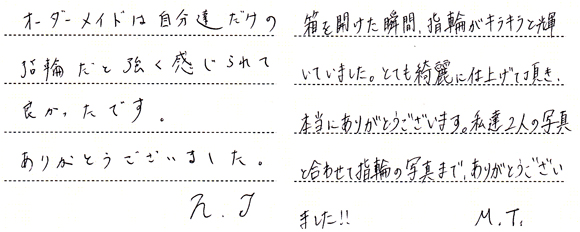 オーダーメイドは自分達だけの
指輪だと強く感じられて
良かったです。
ありがとうございました。
N.T
箱を開けた瞬間、指輪がキラキラと輝
いていました。とても綺麗に仕上げて頂き、
本当にありがとうございます。私達2人の写真
と合わせて指輪の写真まで、ありがとうござい
ました!!
M.T.